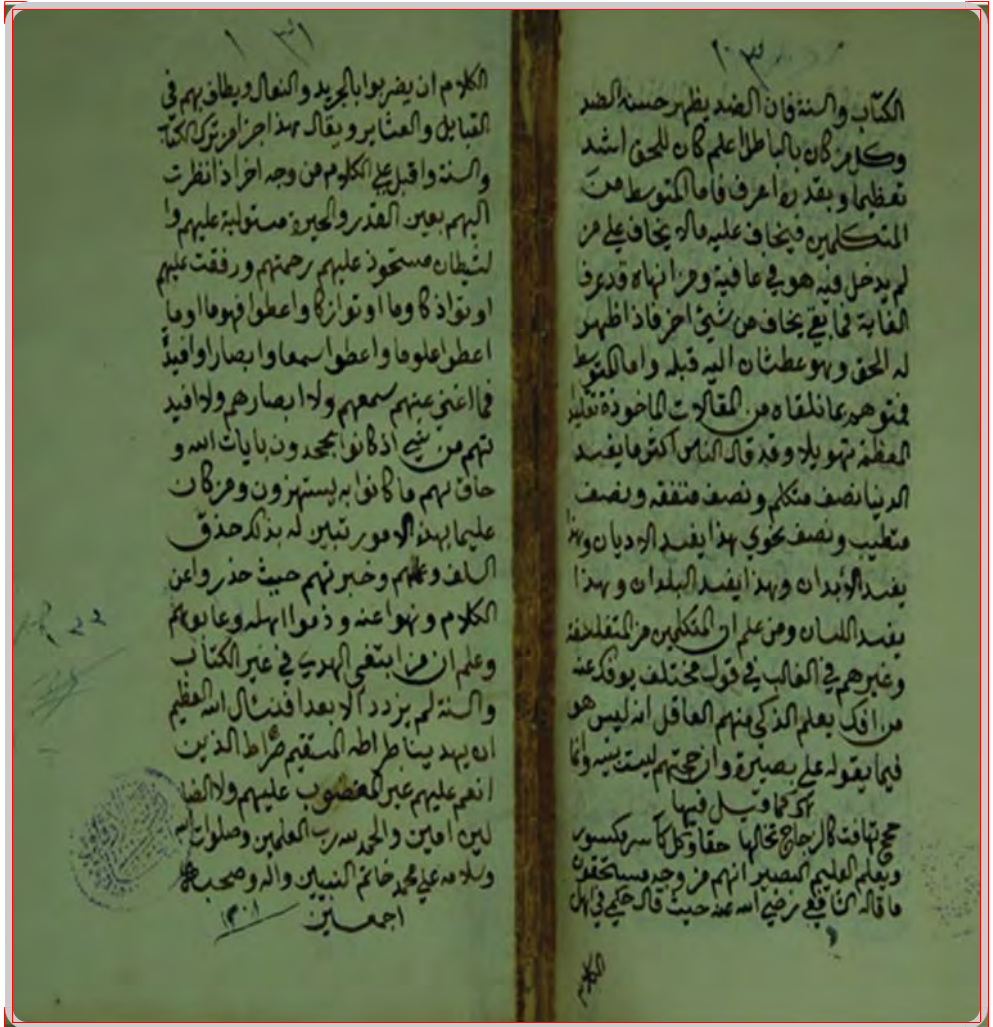 ١٠٣
الكتاب والسنة فان الضد يظهر حسنه الضد
وكل من كان بالباطل اعلم كان للحق اشد
تعظيما وبقدره اعرف فاما المتوسط من
المتكلمين فيخاف عليه مالا يخاف على من
لم يدخل فيه هو في عافية ومن انهاه قد عرف
الغاية فما بقي يخاف من شيئ اخر فاذا ظهر
له الحق وهو عطشان اليه قبله واما المتوسط
فمتوهم بما تلقاه من المقالات الماخوذة تقليدا
المعظمة تهويلا وقد قال الناس اكثر ما يفسد
الدنيا نصف متكلم ونصف متفقه ونصف
متطبب ونصف نحوي هذا يفسد الاديان وهذا
يفسد الابدان وهذا يفسد البلدان وهذا
يفسد اللسان ومن علم ان المتكلمين من المتفلسفة
وغيرهم في الغالب في قول مختلف يوفك عنه
من افك يعلم الذكي منهم العاقل انه ليس هو
فيما يقوله على بصيرة وان حجتهم ليست ببينه وانما
هي كما قيل فيها
حجج تهافت كالزجاج تخالها حقا وكل كاسر مكسور
ويعلم العليم البصير انهم من وجه مستحقون
ما قاله الشافعي رضي الله عنه حيث قال حكمي في اهل
الكلام
الكلام ان يضربوا بالجريد والنعال ويطاف بهم في
القبايل والعشاير ويقال هذا جزا من ترك الكتاب
والسنة واقبل على الكلام من وجه اخر اذا نظرت
اليهم بعين القدر والحيرة مستولية عليهم وا
لشيطان مستحوذ عليهم رحمتهم ورفقت عليهم
اوتوا ذكا وما اوتوا زكا واعطوا فهوما وما
اعطوا علوما واعطوا سمعا وابصارا وافيدة
فما اغني عنهم سمعهم ولا ابصارهم ولا افيد
تهم من شيي اذ كانوا يجحدون بايات الله و
حاق بهم ما كانوا به يستهزون ومن كان
عليما بهذه الامور تبين له بذلك حذق
السلف وعلمهم وخبرتهم حيث حذروا عن
الكلام ونهوا عنه وذموا اهله وعابوهم
وعلم ان من ابتغي الهدي في غير الكتاب
والسنة لم يزدد الا بعدا فنسال الله العظيم
ان يهدينا صراطه المستقيم صراط الذين
انعم عليهم غير المغضوب عليهم ولا الضا
لين امين والحمد لله رب العلمين وصلوات الله
وسلامه على محمد خاتم النبيين واله وصحبه
اجمعين ١٣٠١